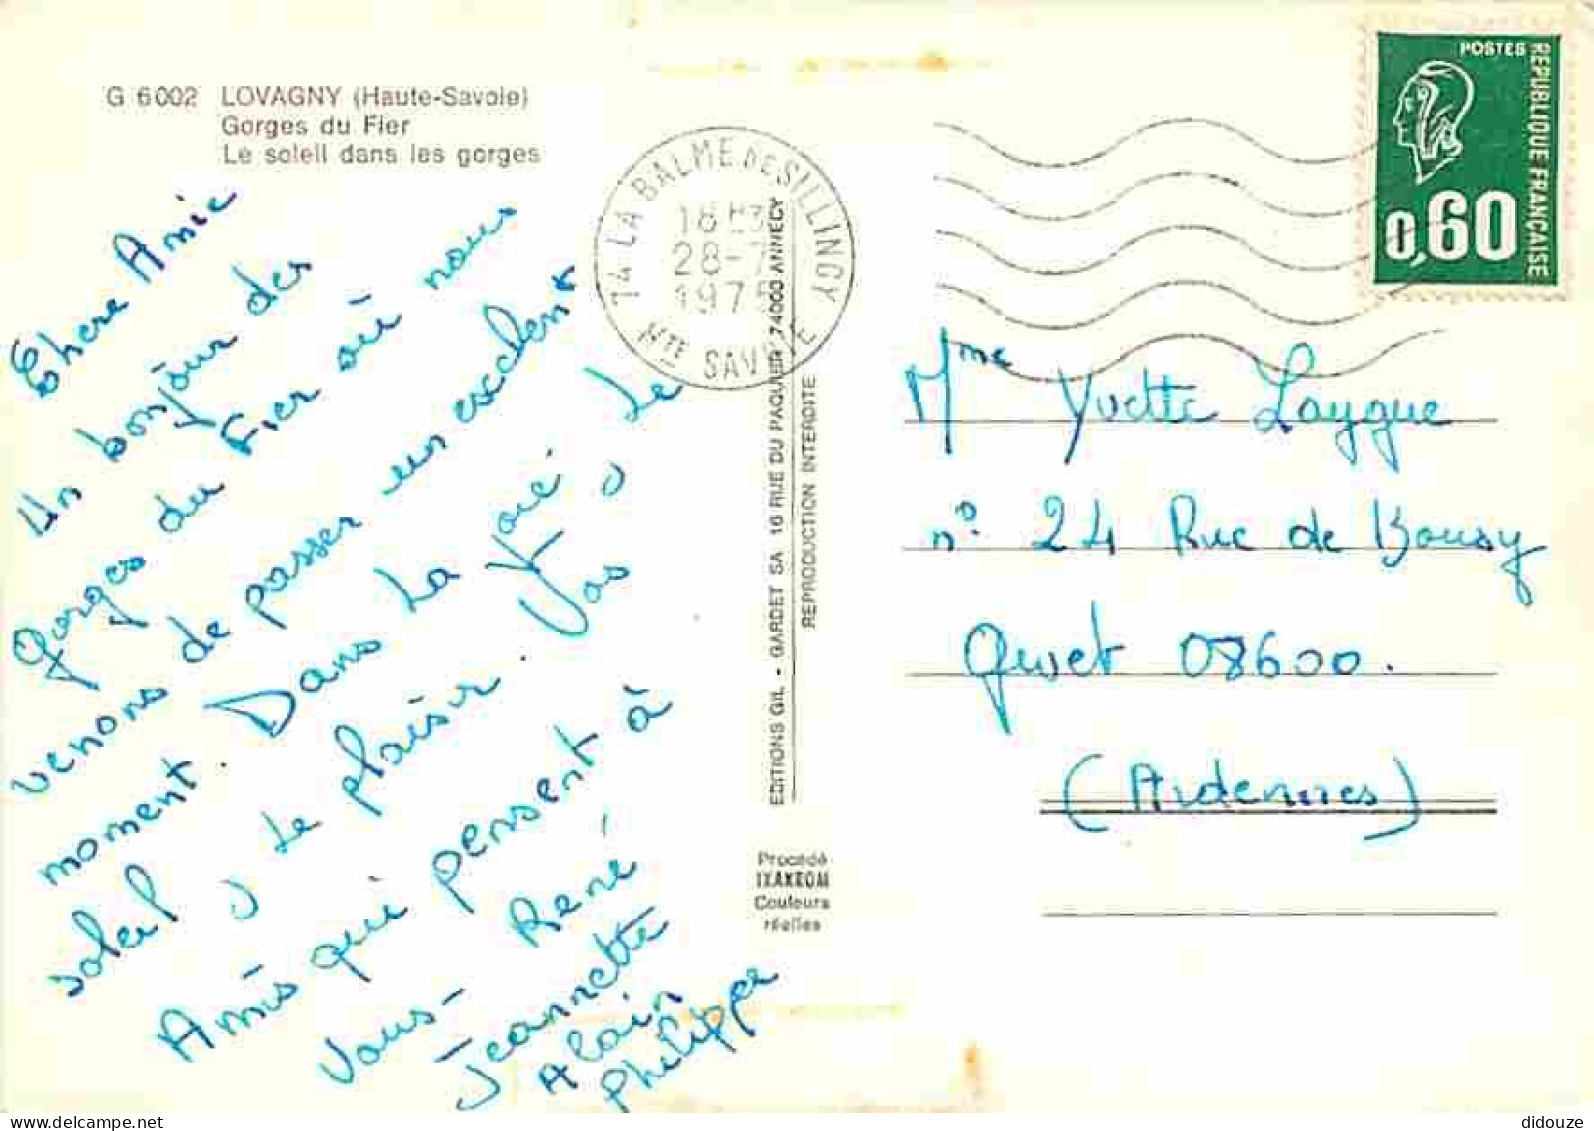 G 6002 LOVAGNY (Haute-Savoie)
Gorges du Fier
Le soleil dans les gorges
Chere Amie
Un bonjour des
gorges du Fier où nous
venons de passer un excellent
moment. Dans la Joie, le
soleil, le plaisir. Vos
Amis qui pensent à
Vous - René
Jeannette
Alain
Philippe
74 LA BALME DE SILLINGY
18 H
28-7
1975
HTE SAVOIE
EDITIONS GIL - GARDET SA 16 RUE DU PAQUIER 74000 ANNECY
REPRODUCTION INTERDITE
Procédé
IXAKROM
Couleurs
réelles
POSTES
REPUBLIQUE FRANÇAISE
0,60
Mme Yvette Laygue
n° 24 Rue de Bousy
Givet 08600.
(Ardennes)
delcampe.net
didouze